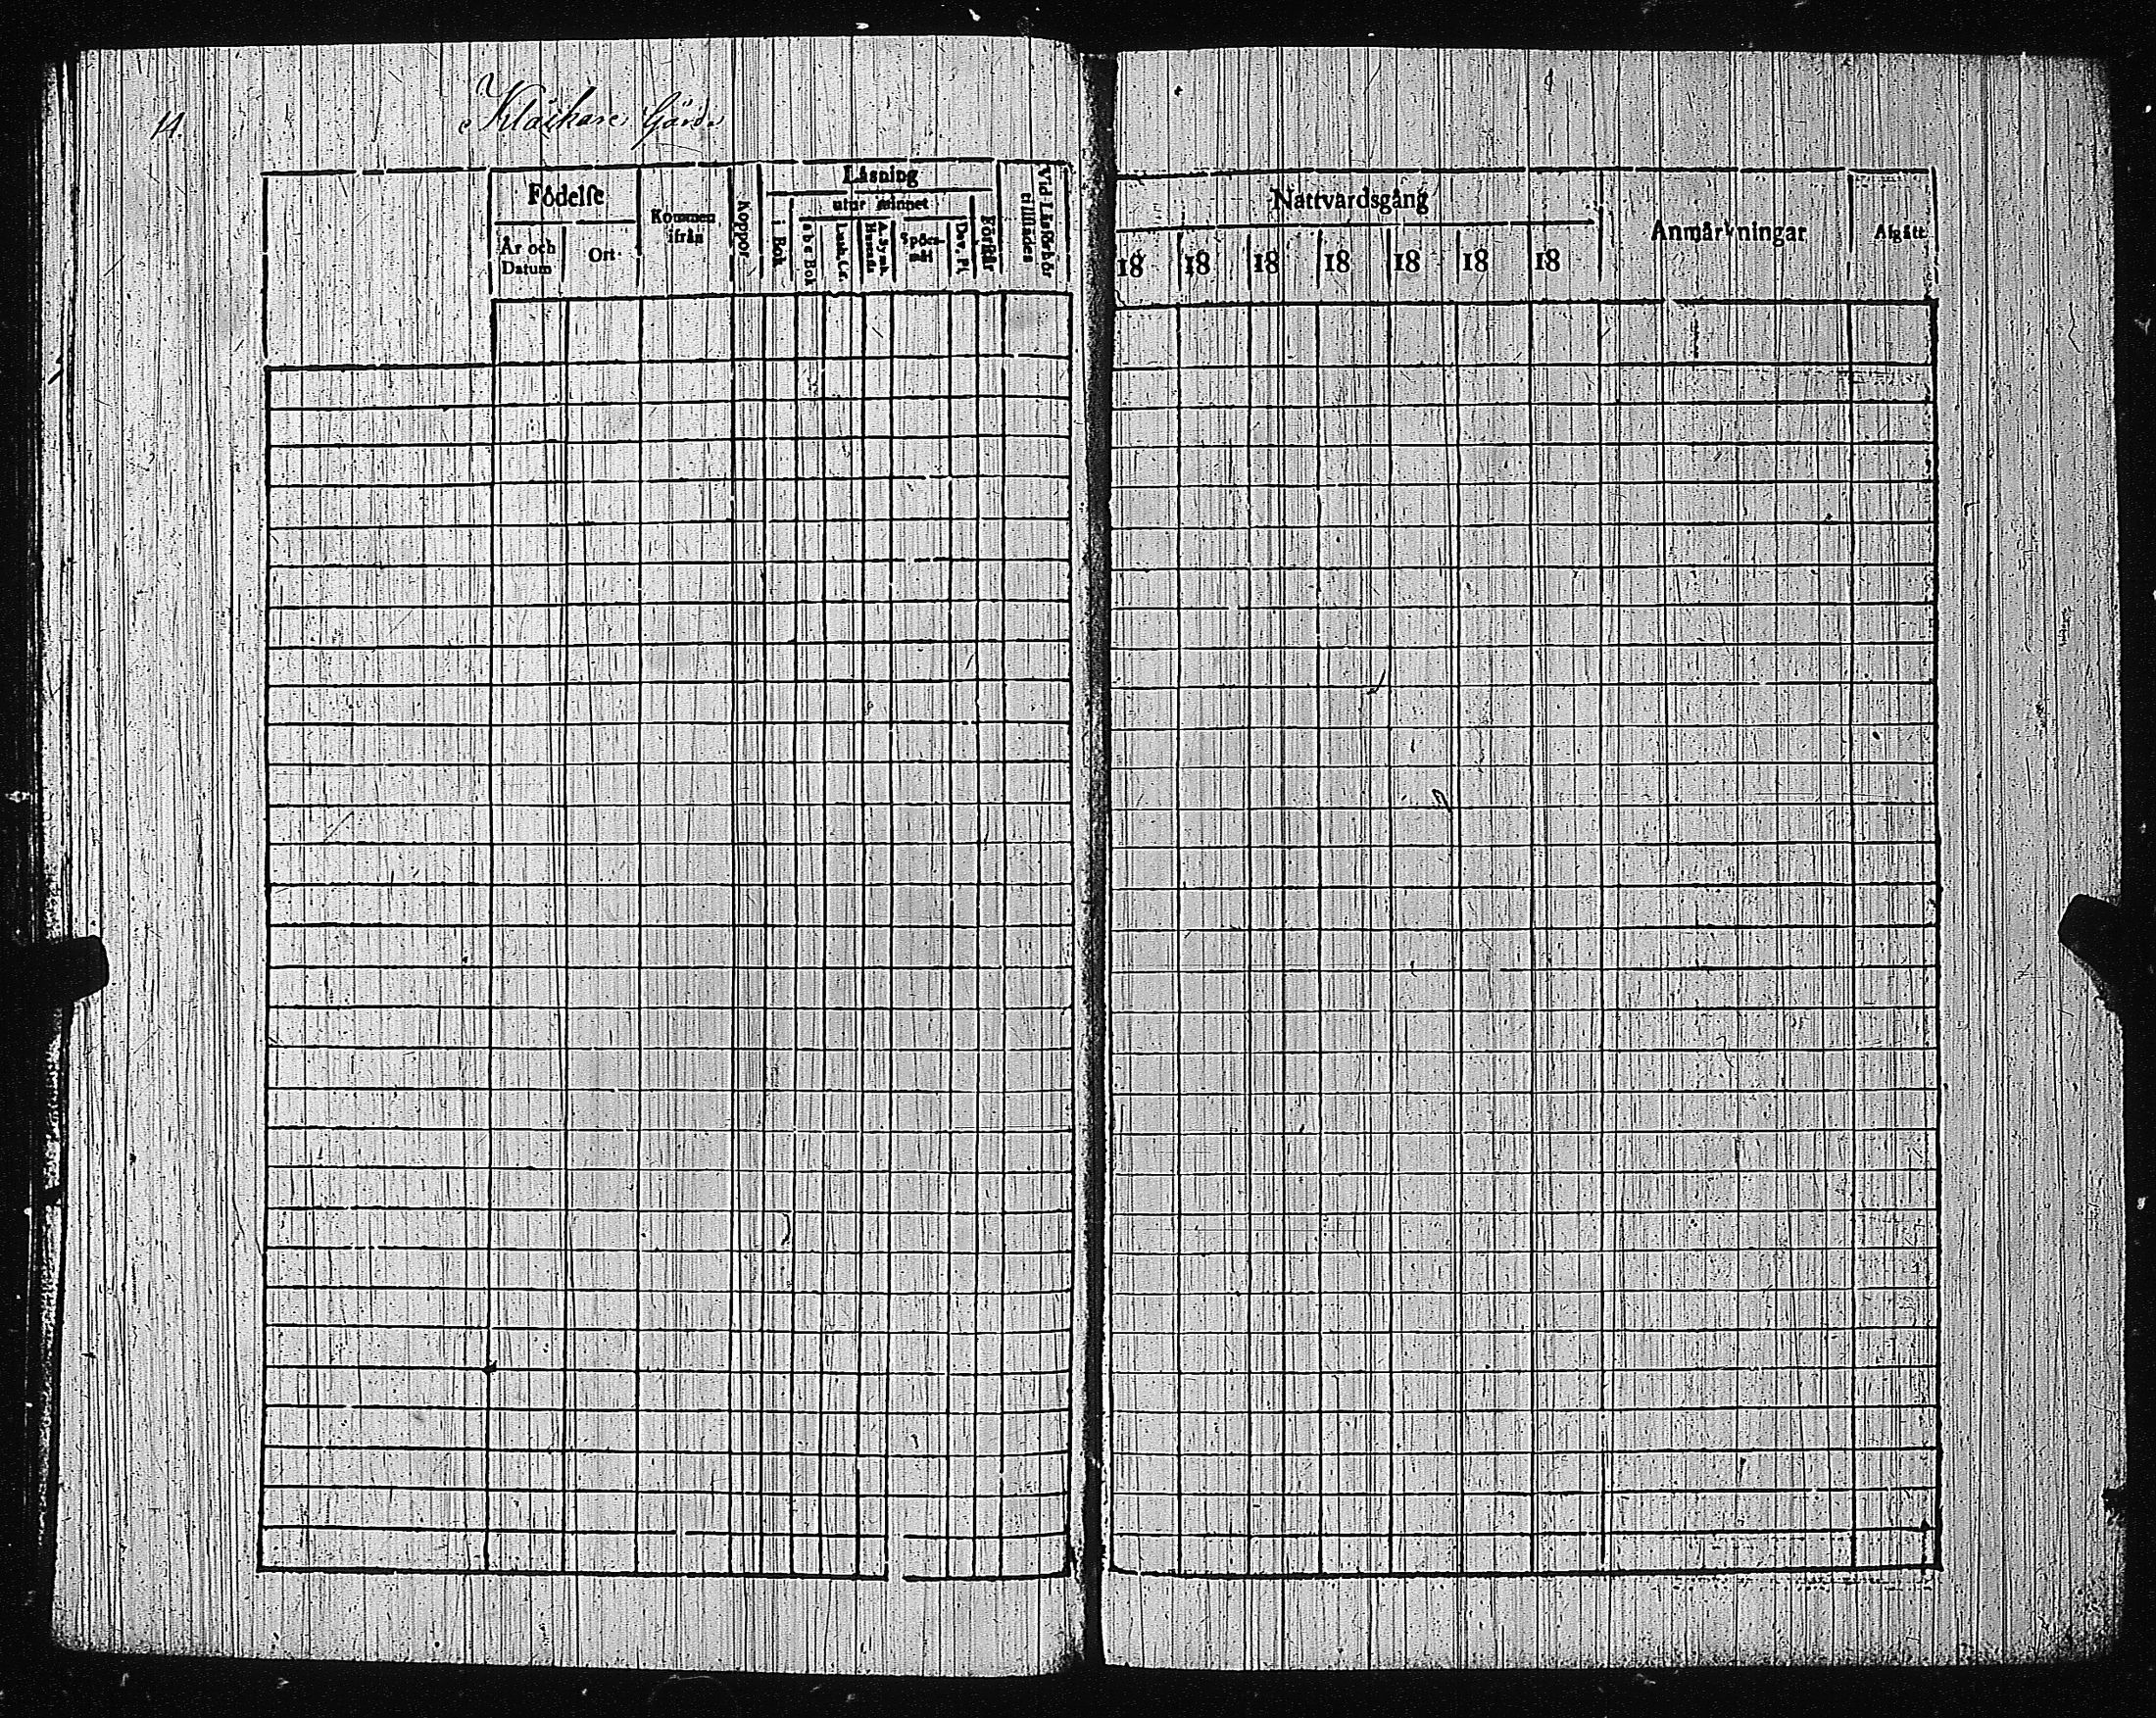 14.
Klåckare Gård
Födelse
År och Datum
Ort
Kommen ifrån
Koppor
Läsning
i Bok
utur minnet
a b c Bok
Luth. C.
A. Symb. Hustafla
Spörs-mål
Dav. Ps.
Förstår
Vid Läsförhör tillstädes
Nattvardsgång
18 18 18 18 18 18 18
Anmärkningar
Afgått